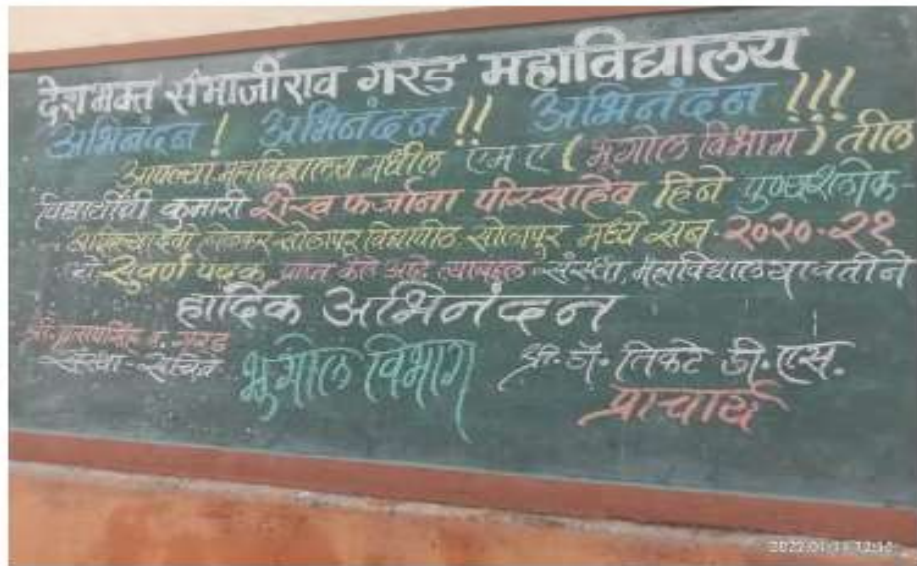 देशभक्त संभाजीराव गरड महाविद्यालय
अभिनंदन ! अभिनंदन !! अभिनंदन !!!
आपल्या महाविद्यालय मधील एम ए (भूगोल विभाग) तील
विद्यार्थीनी कुमारी शेख फर्जाना पीरसाहेब हिने पुण्यश्लोक
अहिल्यादेवी होळकर सोलापूर विद्यापीठ सोलापूर मध्ये सन २०२०-२१
चे सुवर्ण पदक प्राप्त केले आहे त्याबद्दल संस्था, महाविद्यालयावतीने
हार्दिक अभिनंदन
गरड
संस्था - सचिव
भूगोल विभाग
प्रा. डॉ. तिकटे डी. एस.
प्राचार्य